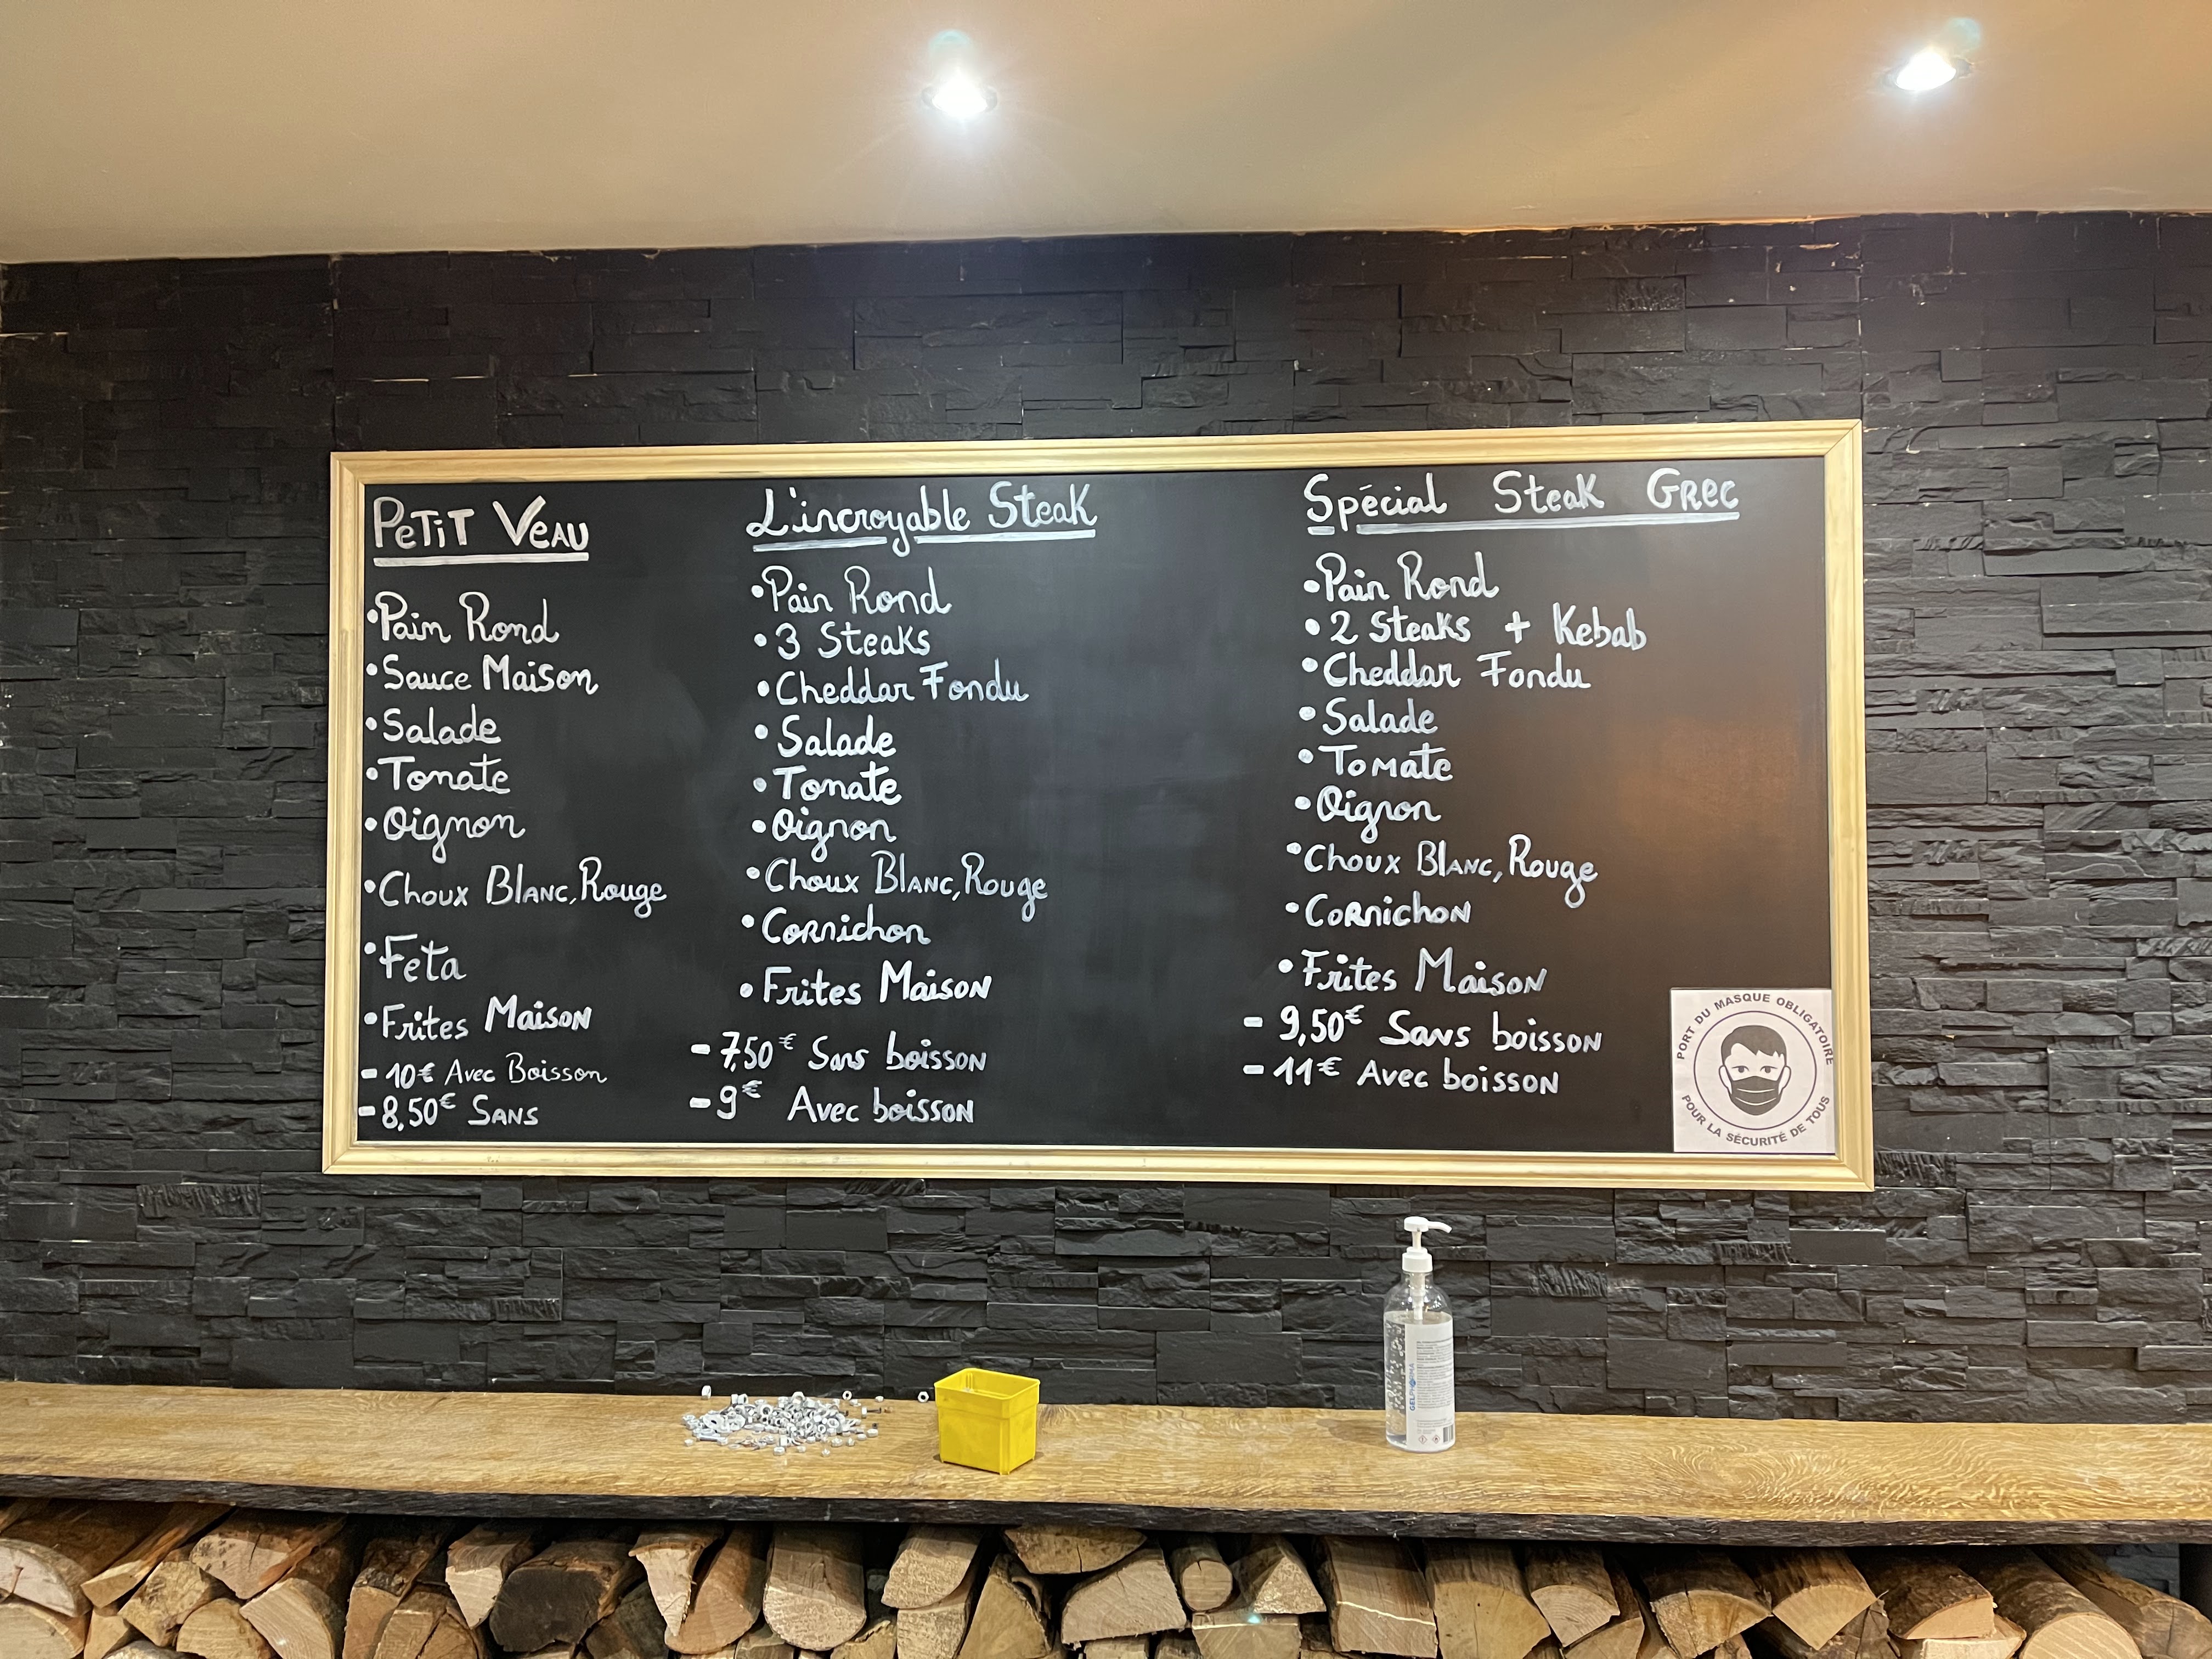 PETIT VEAU
•Pain Rond
•Sauce Maison
•Salade
•Tomate
•Oignon
•Choux Blanc, Rouge
•Feta
•Frites Maison
- 10€ Avec Boisson
- 8,50€ SANS
L'incroyable Steak
•Pain Rond
•3 Steaks
•Cheddar Fondu
•Salade
•Tomate
•Oignon
•Choux Blanc, Rouge
•Cornichon
•Frites Maison
- 7,50€ Sans boisson
- 9€ Avec boisson
Spécial Steak Grec
•Pain Rond
•2 Steaks + Kebab
•Cheddar Fondu
•Salade
•Tomate
•Oignon
•Choux Blanc, Rouge
•Cornichon
•Frites Maison
- 9,50€ Sans boisson
- 11€ Avec boisson
PORT DU MASQUE OBLIGATOIRE
POUR LA SÉCURITÉ DE TOUS